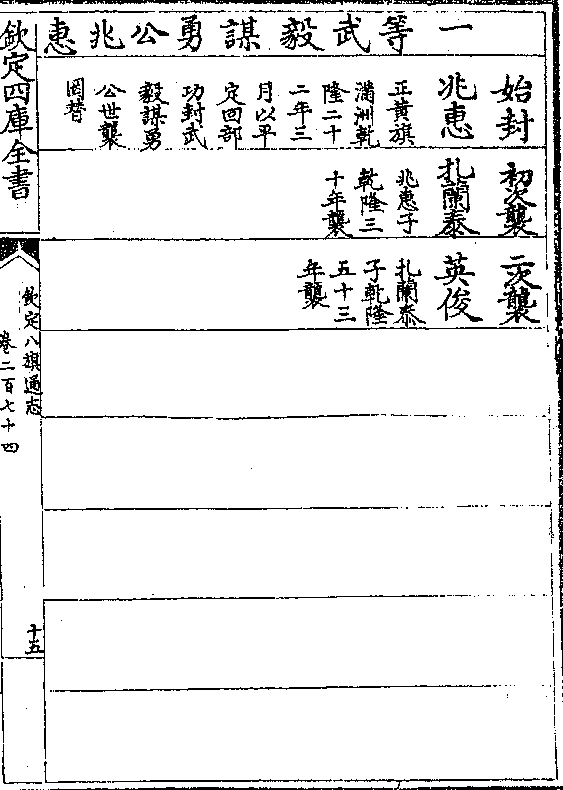 一等武毅謀勇公兆惠
始封
兆惠
正黃旗
滿洲乾
隆二十
二年三
月以平
定回部
功封武
毅謀勇
公世襲
罔替
初次襲
扎蘭泰
兆惠子
乾隆三
十年襲
二次襲
英俊
扎蘭泰
子乾隆
五十三
年襲
欽定四庫全書
欽定八旗通志
卷二百七十四
十五